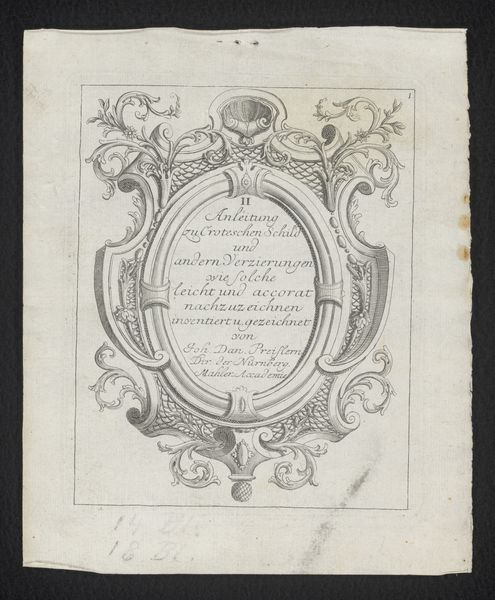 1
II
Anleitung
zu Croteschen Schild
und
andern Verzierungen
wie solche
leicht und accorat
nachzuzeichnen
inventiert u. gezeichnet
von
Joh. Dan. Preislern
Dir. der Nürnberg.
Mahler Accademie
18 Bl.